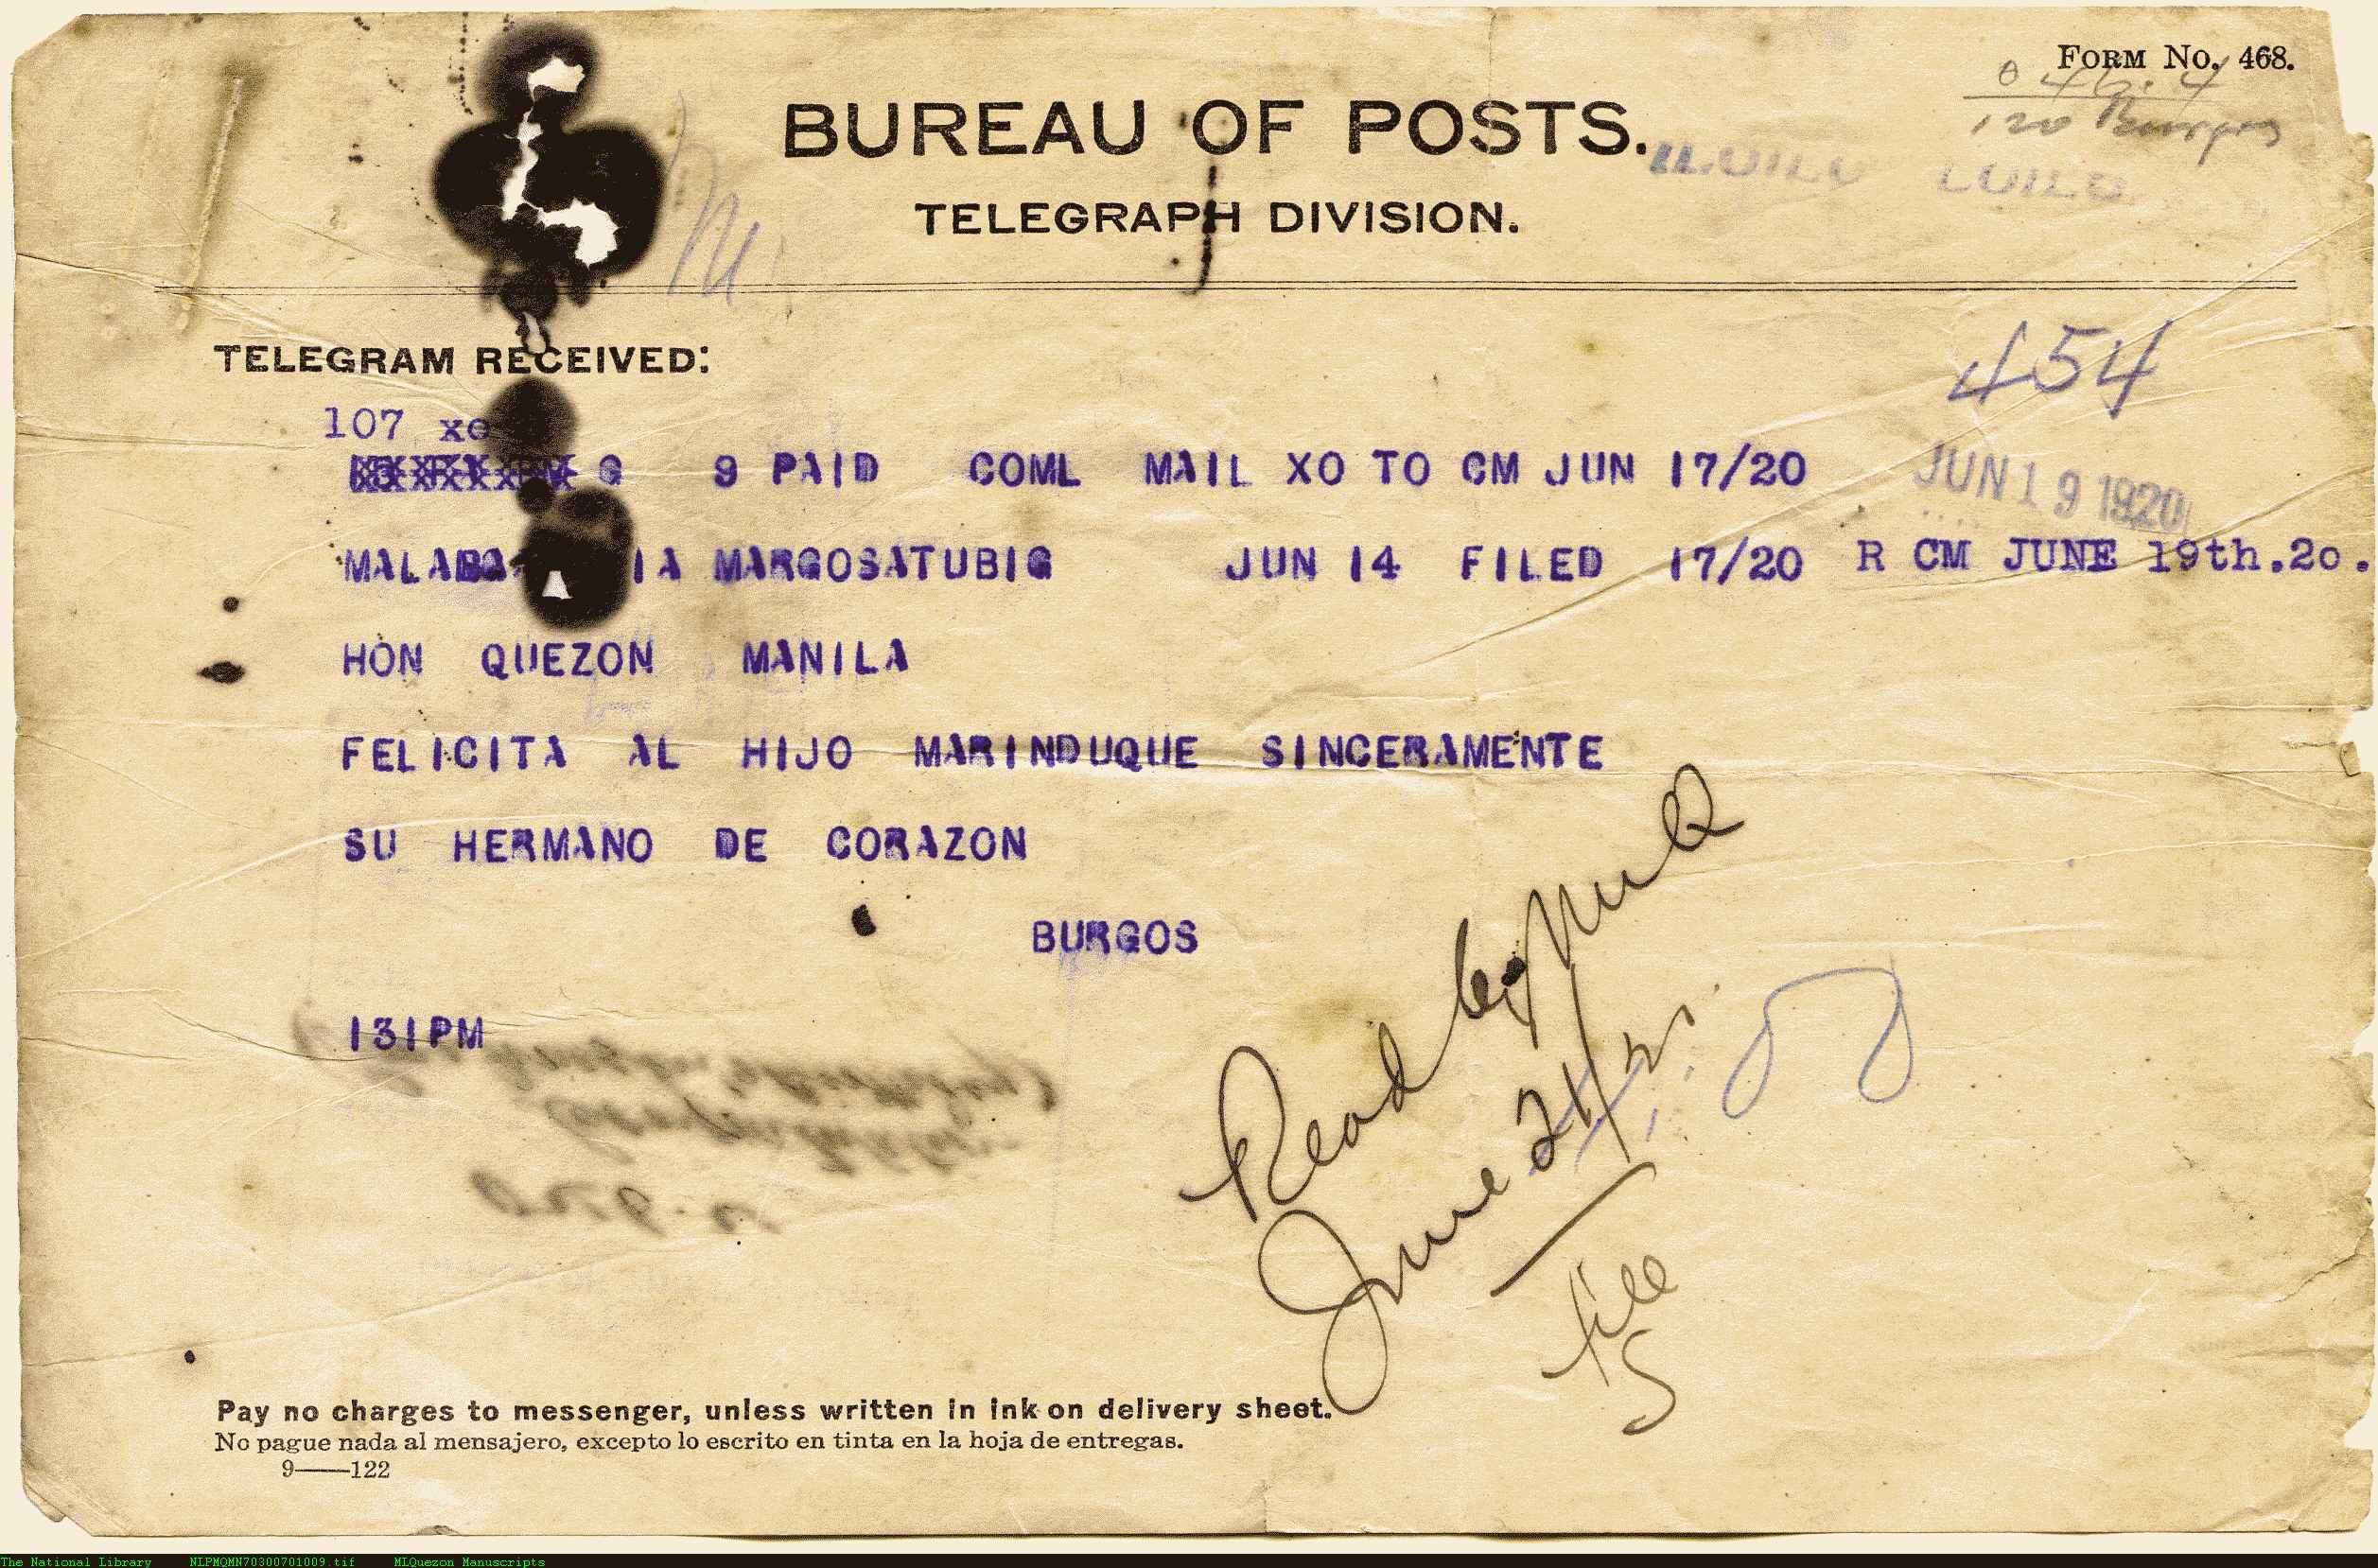 FORM No. 468.
BUREAU OF POSTS.
TELEGRAPH DIVISION.
TELEGRAM RECEIVED:
454
107 xo
G 9 PAID COML MAIL XO TO CM JUN 17/20
JUN 19 1920
MARGOSATUBIG JUN 14 FILED 17/20 R CM JUNE 19th.20.
HON QUEZON MANILA
FELICITA AL HIJO MARINDUQUE SINCERAMENTE
SU HERMANO DE CORAZON
BURGOS
131PM
Read by
June 21/
file
S
Pay no charges to messenger, unless written in ink on delivery sheet.
No pague nada al mensajero, excepto lo escrito en tinta en la hoja de entregas.
9——122
The National Library NLPMQMN70300701009.tif MLQuezon Manuscripts